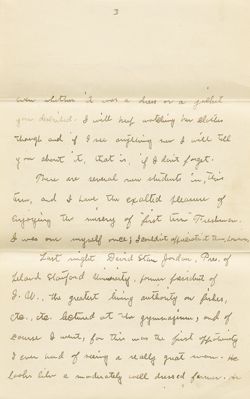 3
even whether it was a dress or a jacket
you described. I will keep watching her clothes
though and if I see anything new I will tell
you about it, that is, if I don't forget.
There are several new students in, this
term, and I have the exalted pleasure of
enjoying the misery of "first term" Freshmen.
I was one myself once; I couldn't appreciate it then, however.
Last night David Starr Jordan, Pres. of
Leland Stanford University, former president of
I. U., the greatest living authority on fishes,
etc., etc. lectured at the gymnasium; and of
course I went, for this was the first opportunity
I ever had of seeing a really great man. He
looks like a moderately well dressed farmer. He